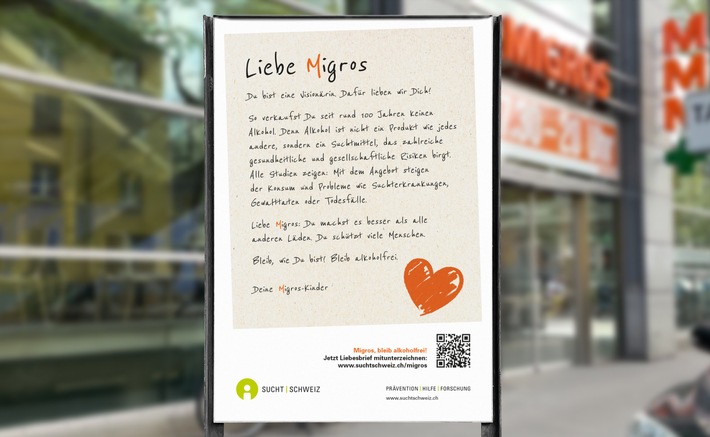 Liebe Migros
Du bist eine Visionärin. Dafür lieben wir Dich!
So verkaufst Du seit rund 100 Jahren keinen
Alkohol. Denn Alkohol ist nicht ein Produkt wie jedes
andere, sondern ein Suchtmittel, das zahlreiche
gesundheitliche und gesellschaftliche Risiken birgt.
Alle Studien zeigen: Mit dem Angebot steigen
der Konsum und Probleme wie Suchterkrankungen,
Gewalttaten oder Todesfälle.
Liebe Migros: Du machst es besser als alle
anderen Läden. Du schützt viele Menschen.
Bleib, wie Du bist! Bleib alkoholfrei.
Deine Migros-Kinder
Migros, bleib alkoholfrei!
Jetzt Liebesbrief mitunterzeichnen:
www.suchtschweiz.ch/migros
SUCHT | SCHWEIZ
PRÄVENTION | HILFE | FORSCHUNG
www.suchtschweiz.ch
MIGROS
MMM